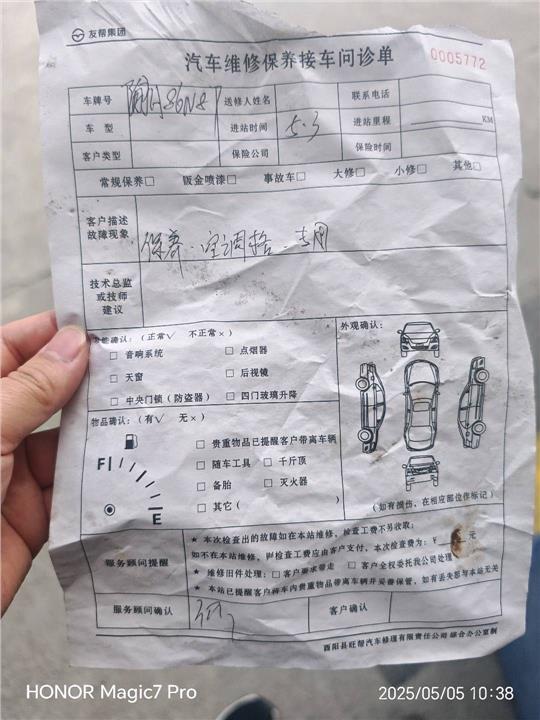 友帮集团
汽车维修保养接车问诊单
0005772
车牌号 送修人姓名 联系电话
车 型 进站时间 5.3 进站里程 KM
客户类型 保险公司 保险时间
常规保养□ 钣金喷漆□ 事故车□ 大修□ 小修□ 其他□
客户描述
故障现象
保养.空调格.专用
技术总监
或技师
建议
功能确认:(正常√ 不正常×)
外观确认:
□ 音响系统 □ 点烟器
□ 天窗 □ 后视镜
□ 中央门锁(防盗器) □ 四门玻璃升降
物品确认:(有√ 无×)
□ 贵重物品已提醒客户带离车辆
F
□ 随车工具 □ 千斤顶
□ 备胎 □ 灭火器
□ 其它( )
E
(如有损伤,在相应部位作标记)
服务顾问提醒
★ 本次检查出的故障如在本站维修,检查工费不另收取;
如不在本站维修,则检查工费应由客户支付,本次检查费为:¥ 元
★ 维修旧件处理:□客户要求带走 □客户全权委托我公司处理
★ 本站已提醒客户将车内贵重物品带离车辆并妥善保管,如有丢失恕与本站无关
服务顾问确认 客户确认
酉阳县旺帮汽车修理有限责任公司 综合办公室制
HONOR Magic7 Pro
2025/05/05 10:38